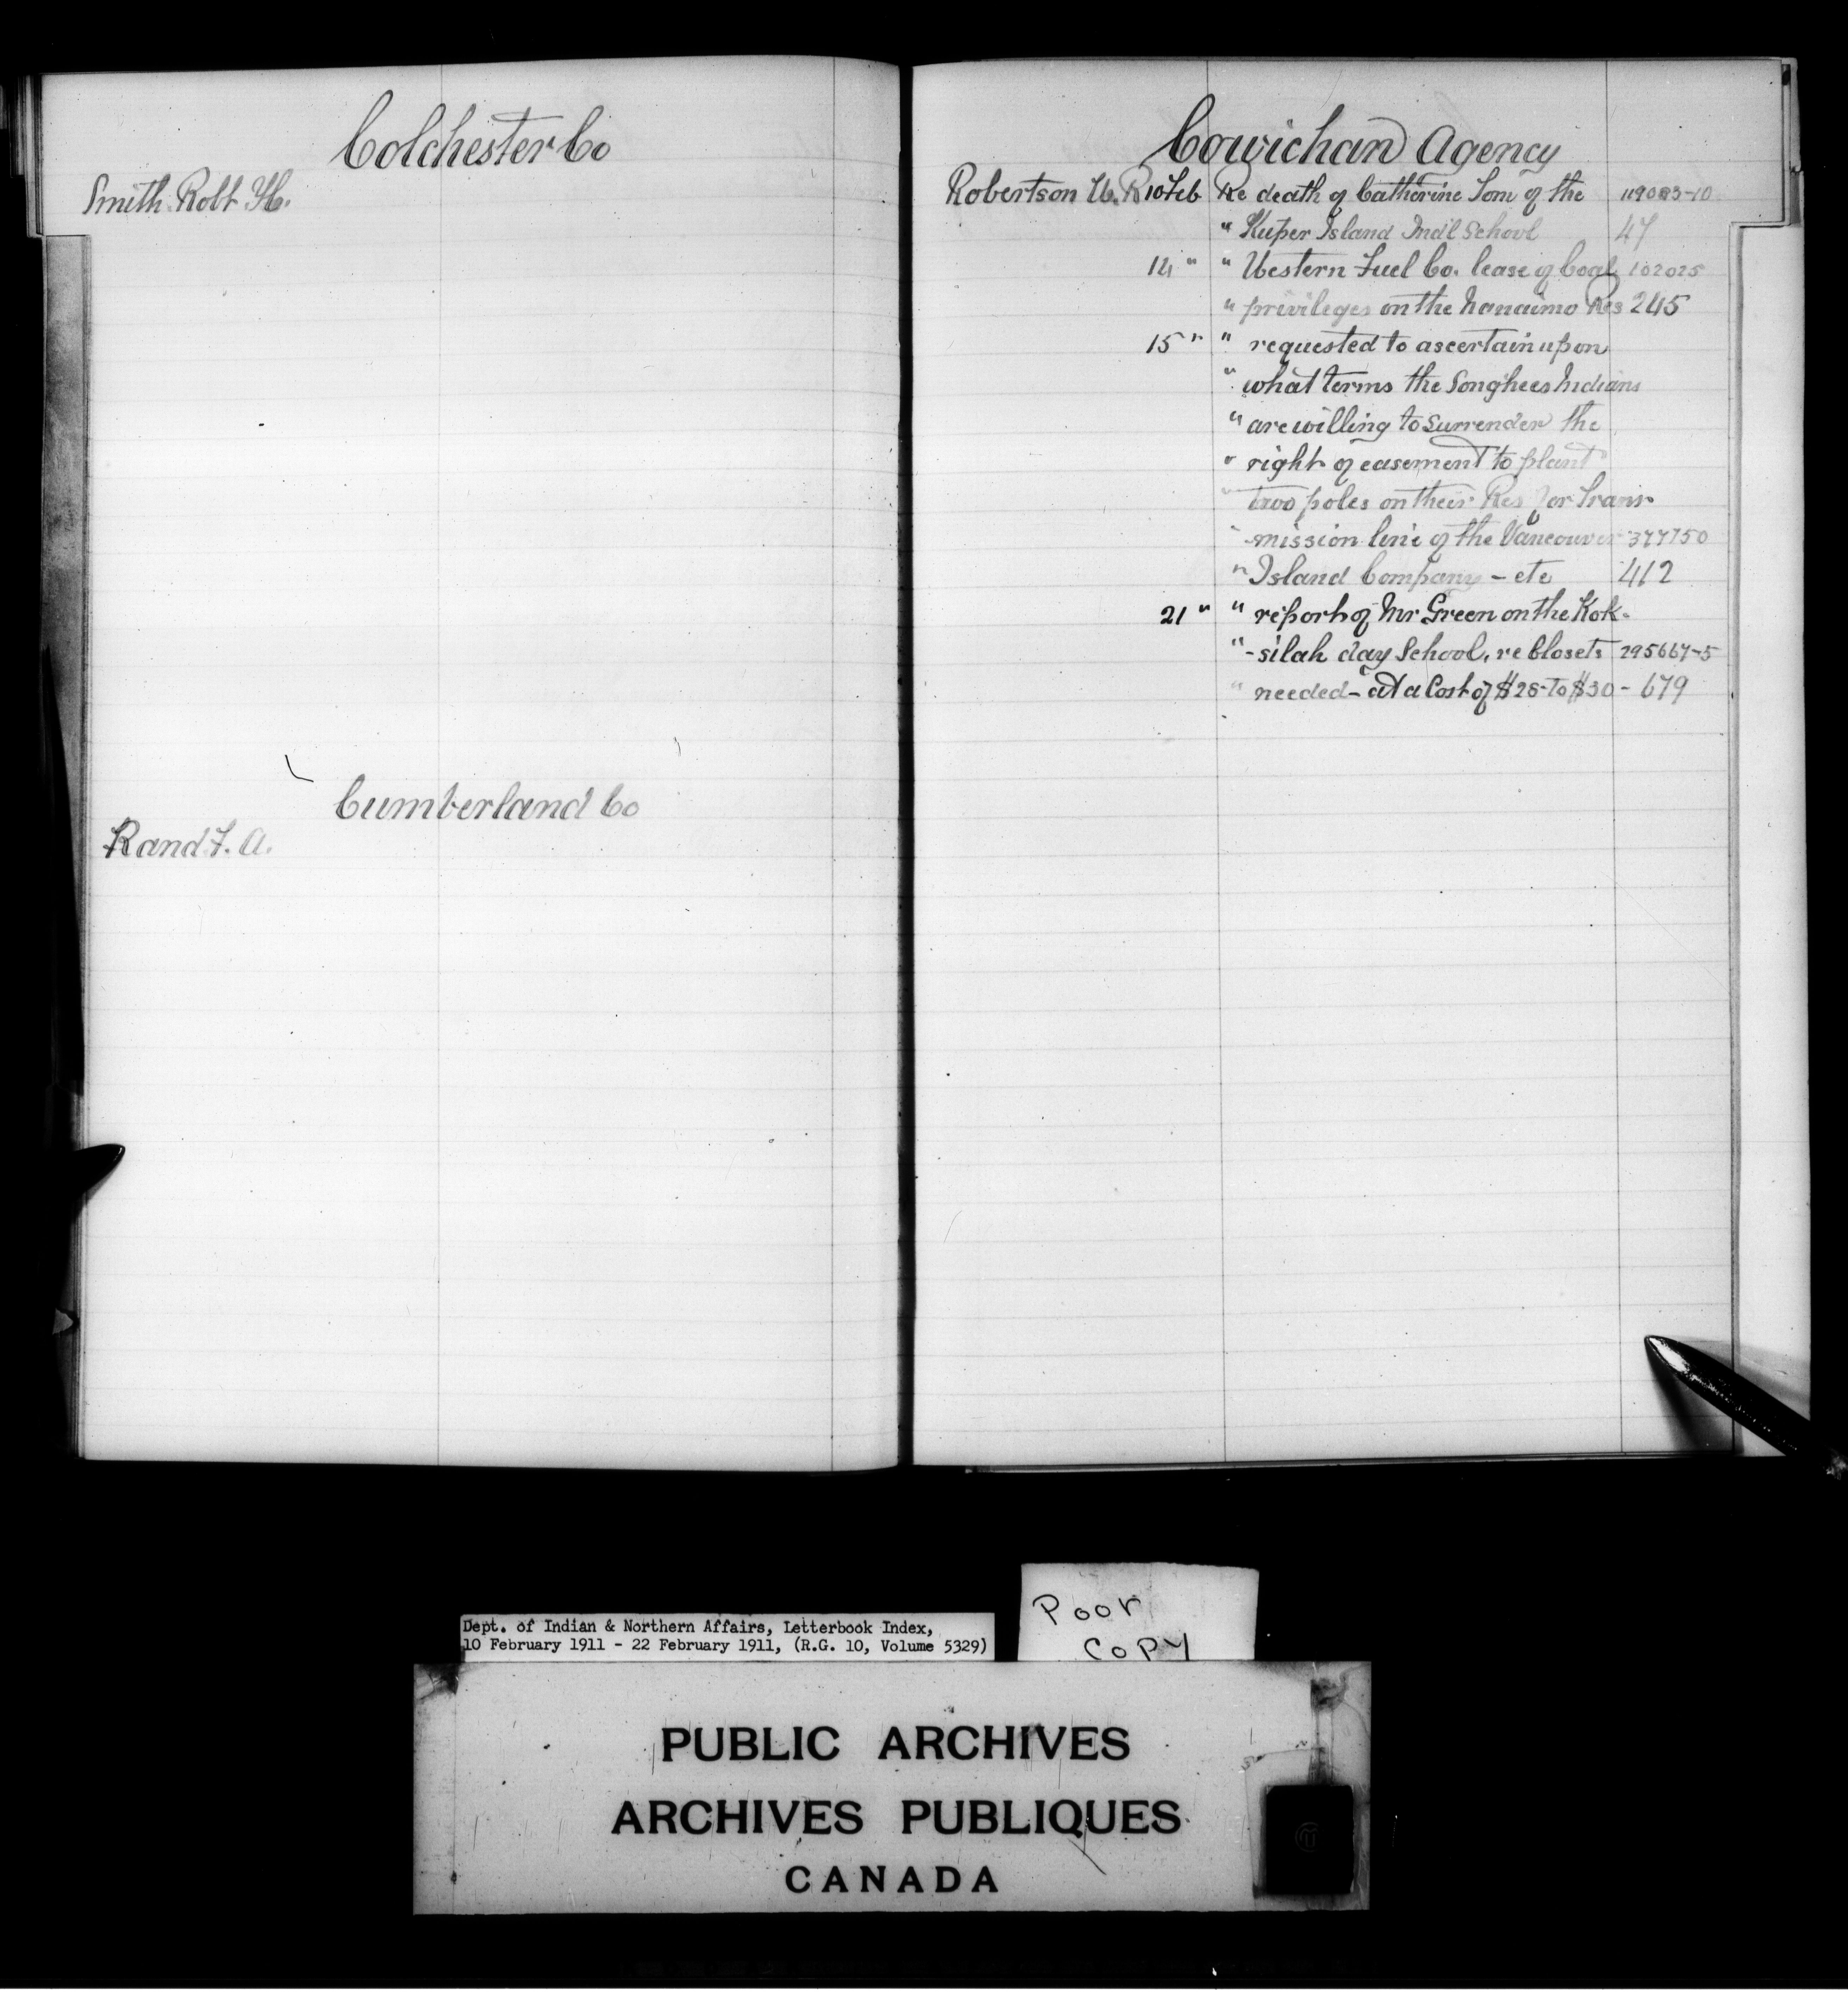 Colchester Co
Smith Robt H.
Cumberland Co
Rand F. A.
Cowichan Agency
Robertson W. R 10 Feb Re death of Catherine Tom of the 119083-10
" Kuper Island Ind'l School 47
14 " " Western Fuel Co. lease of Coal 102025
" privileges on the Nanaimo Res 245
15 " " requested to ascertain upon
" what terms the Songhees Indians
" are willing to surrender the
" right of easement to plant
" two poles on their Res for Trans-
" mission line of the Vancouver 377750
" Island Company - etc 412
21 " " report of Mr Green on the Kok-
" -silah day School, re Closets 295667-5
" needed - at a Cost of $28- to $30 - 679
Poor
COPY
Dept. of Indian & Northern Affairs, Letterbook Index,
10 February 1911 - 22 February 1911, (R.G. 10, Volume 5329)
PUBLIC ARCHIVES
ARCHIVES PUBLIQUES
CANADA